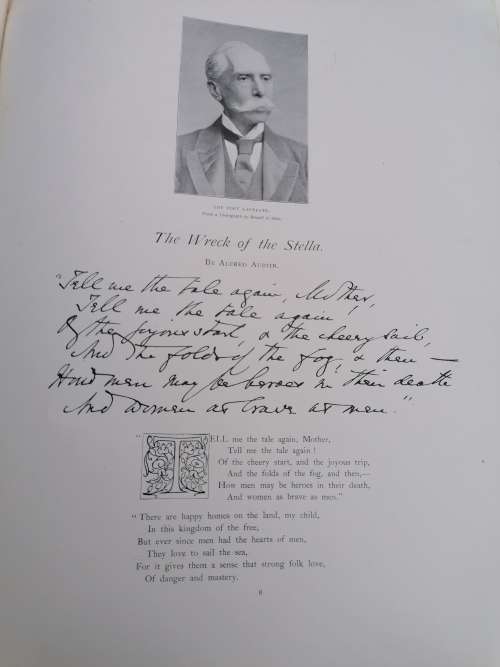 THE POET LAUREATE.
From a Photograph by Russell & Sons.
The Wreck of the Stella.
By Alfred Austin.
"Tell me the tale again, Mother,
Tell me the tale again!
Of the joyous start, & the cheery sail,
And the folds of the fog, & then —
How men may be heroes in their death
And women as brave as men."
"TELL me the tale again, Mother,
Tell me the tale again!
Of the cheery start, and the joyous trip,
And the folds of the fog, and then,—
How men may be heroes in their death,
And women as brave as men."
"There are happy homes on the land, my child,
In this kingdom of the free,
But ever since men had the hearts of men,
They love to sail the sea,
For it gives them a sense that strong folk love,
Of danger and mastery.